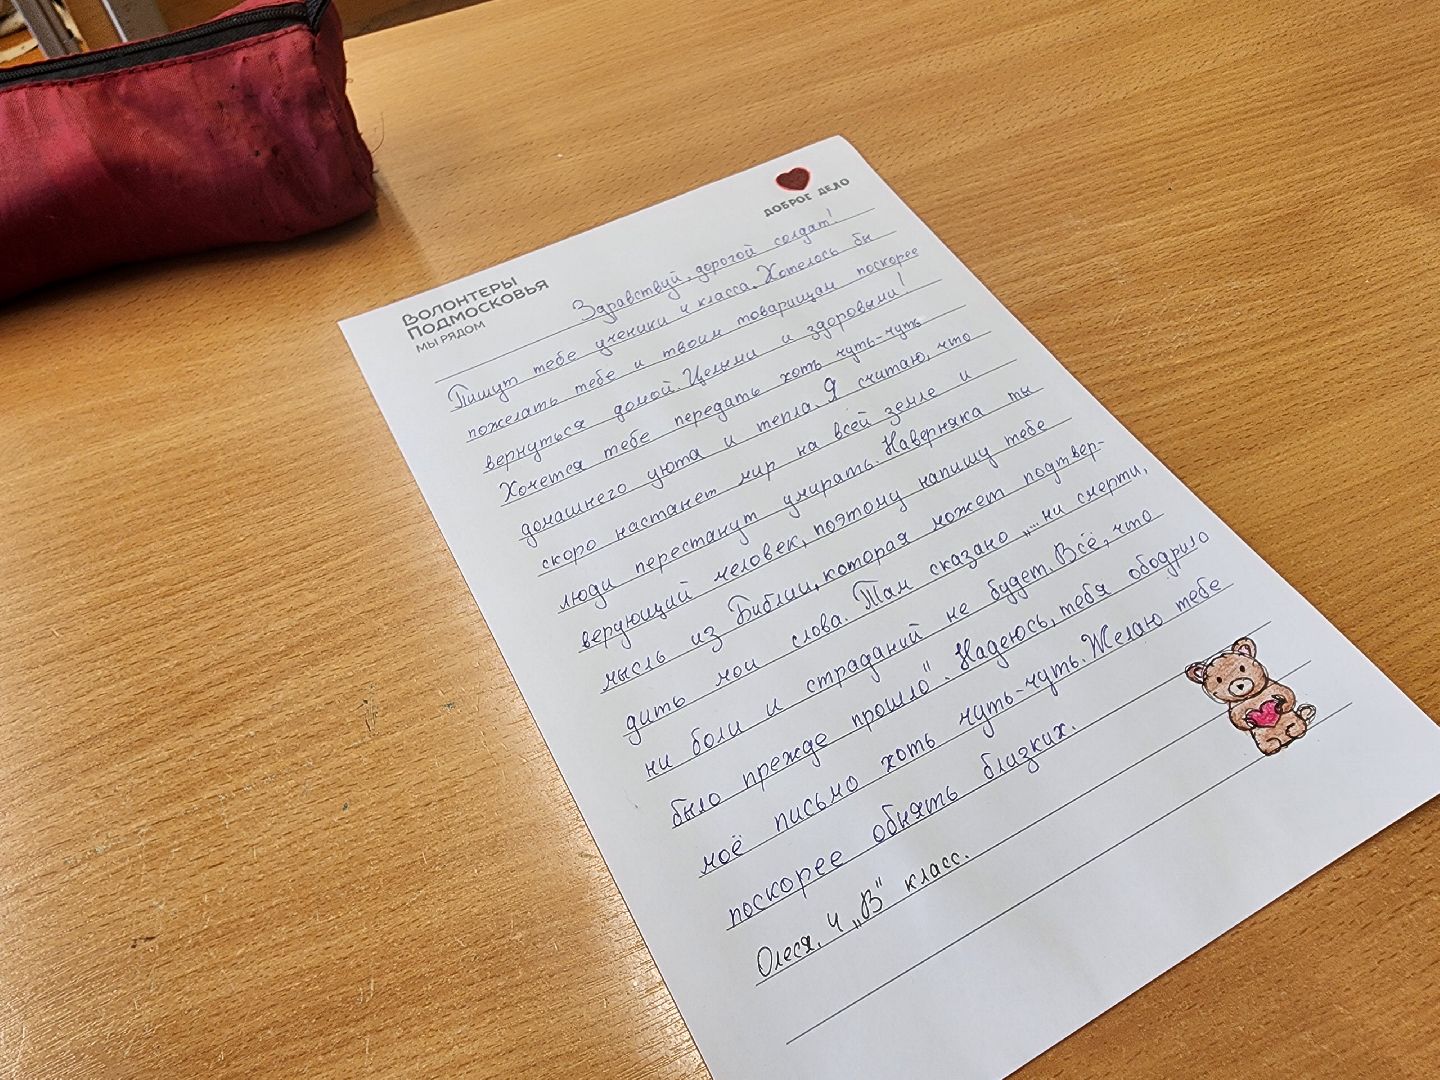 ВОЛОНТЕРЫ
ПОДМОСКОВЬЯ
МЫ РЯДОМ
ДОБРОЕ ДЕЛО
Здравствуй, дорогой солдат!
Пишут тебе ученики 4 класса. Хотелось бы
пожелать тебе и твоим товарищам поскорее
вернуться домой. Целыми и здоровыми!
Хочется тебе передать хоть чуть-чуть
домашнего уюта и тепла. Я считаю, что
скоро настанет мир на всей земле и
люди перестанут умирать. Наверняка ты
верующий человек, поэтому напишу тебе
мысль из Библии, которая может подтвер-
дить мои слова. Там сказано „...ни смерти,
ни боли и страданий не будет. Всё, что
было прежде прошло". Надеюсь, тебя ободрило
моё письмо хоть чуть-чуть. Желаю тебе
поскорее обнять близких.
Олеся, 4 „В" класс.